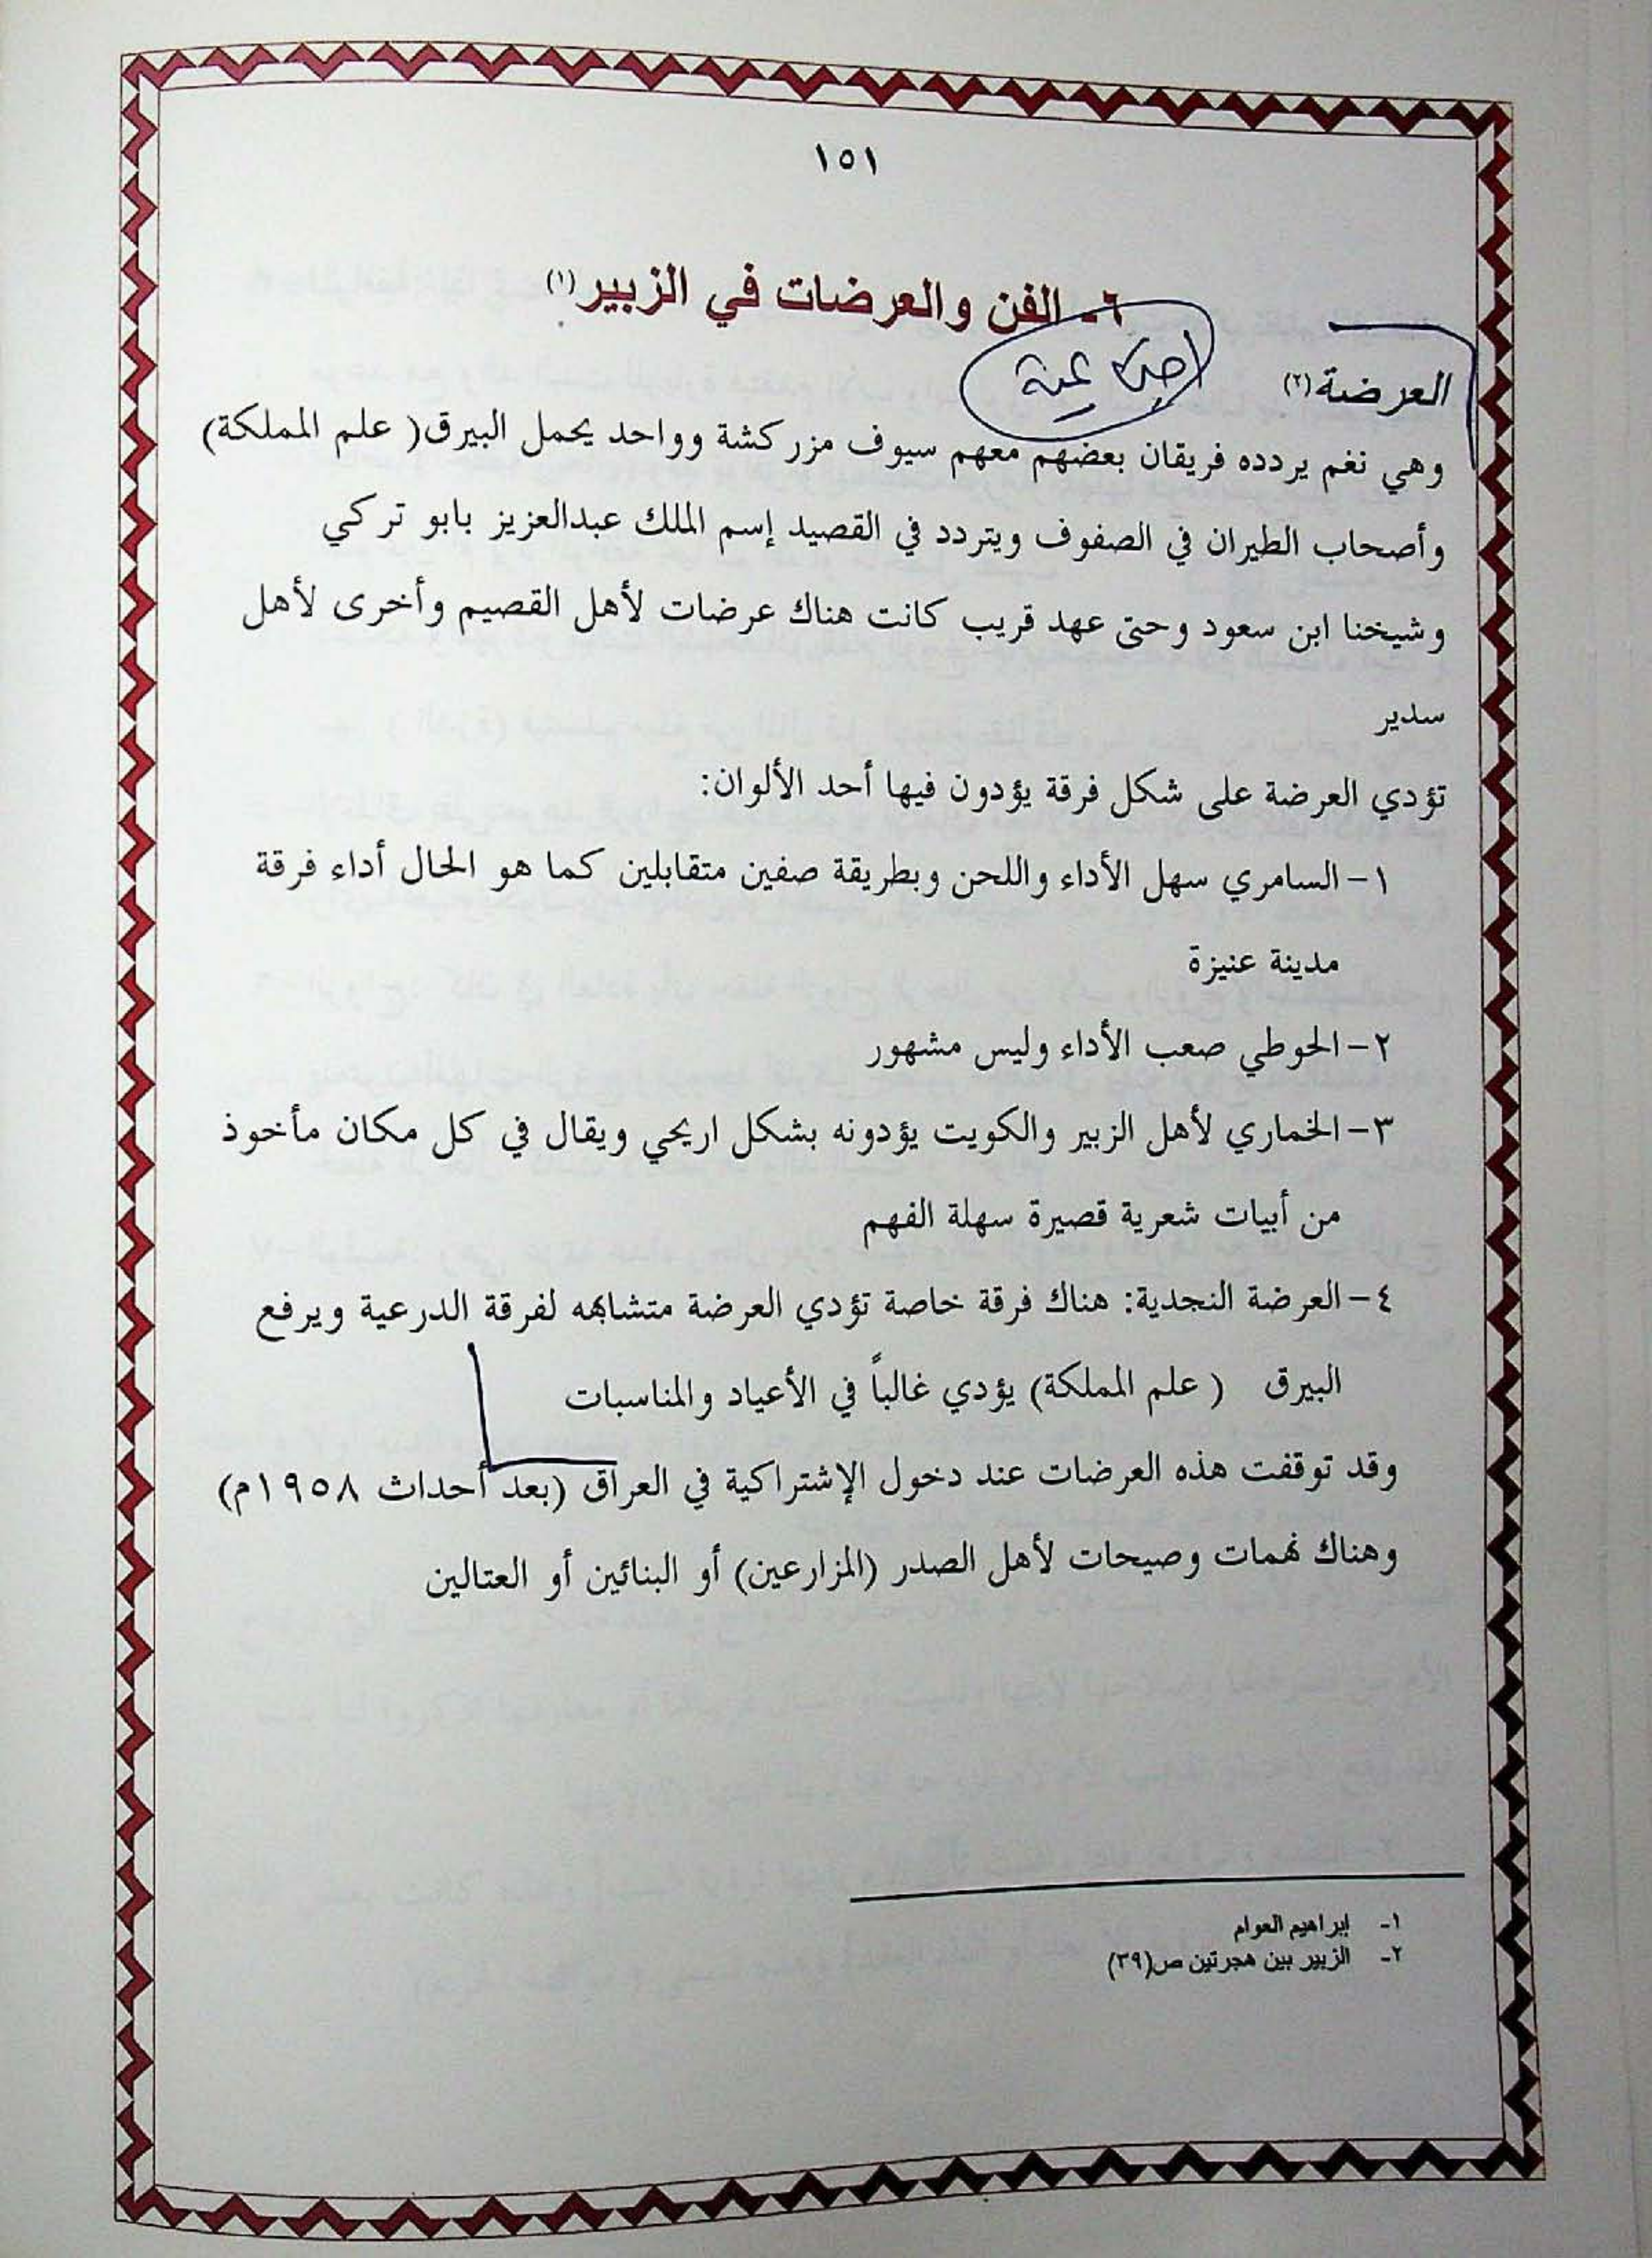 ١٥١
٦- الفن والعرضات في الزبير(١)
العرضة(٢)
وهي نغم يردده فريقان بعضهم معهم سيوف مزركشة وواحد يحمل البيرق( علم المملكة)
وأصحاب الطيران في الصفوف ويتردد في القصيد إسم الملك عبدالعزيز بابو تركي
وشيخنا ابن سعود وحتى عهد قريب كانت هناك عرضات لأهل القصيم وأخرى لأهل
سدير
تؤدي العرضة على شكل فرقة يؤدون فيها أحد الألوان:
١- السامري سهل الأداء واللحن وبطريقة صفين متقابلين كما هو الحال أداء فرقة
مدينة عنيزة
٢- الحوطي صعب الأداء وليس مشهور
٣- الخماري لأهل الزبير والكويت يؤدونه بشكل اريحي ويقال في كل مكان مأخوذ
من أبيات شعرية قصيرة سهلة الفهم
٤- العرضة النجدية: هناك فرقة خاصة تؤدي العرضة متشابهه لفرقة الدرعية ويرفع
البيرق ( علم المملكة) يؤدي غالباً في الأعياد والمناسبات
وقد توقفت هذه العرضات عند دخول الإشتراكية في العراق (بعد أحداث ١٩٥٨م)
وهناك نهمات وصيحات لأهل الصدر (المزارعين) أو البنائين أو العتالين
١- إبراهيم العوام
٢- الزبير بين هجرتين ص(٣٩)